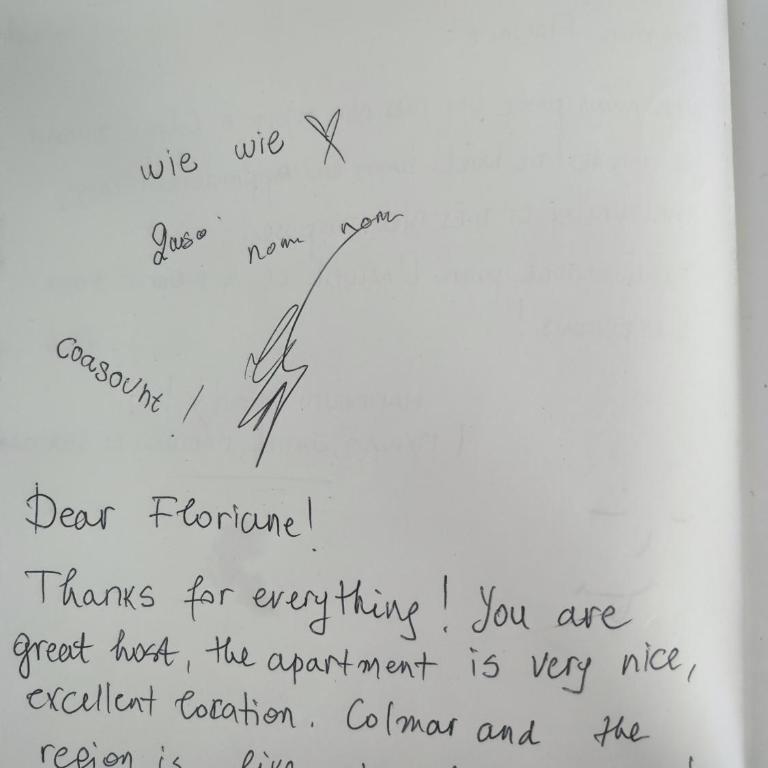 wie wie
nom nom
Dear Floriane!
Thanks for everything! You are
great host, the apartment is very nice,
excellent location. Colmar and the
region is